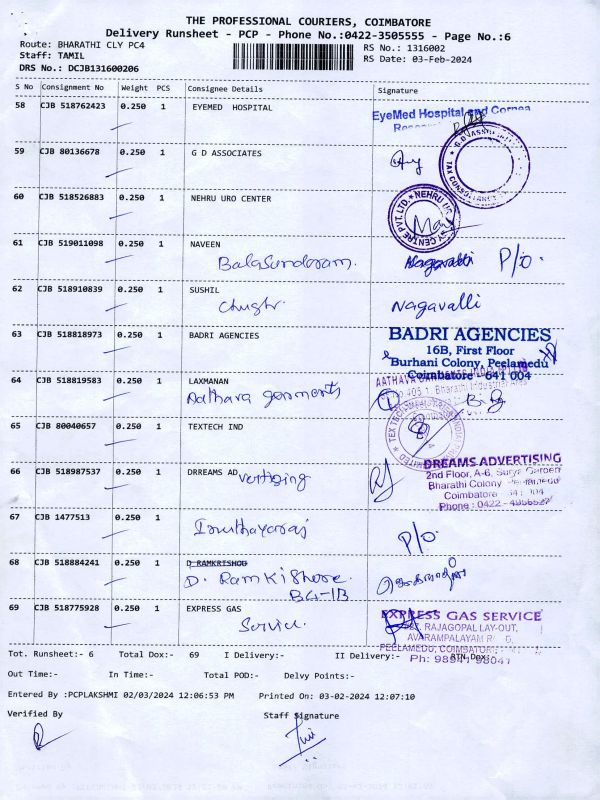 THE PROFESSIONAL COURIERS, COIMBATORE
Delivery Runsheet - PCP - Phone No.:0422-3505555 - Page No.:6
Route: BHARATHI CLY PC4
RS No.: 1316002
Staff: TAMIL
RS Date: 03-Feb-2024
DRS No.: DCJB131600206
S No Consignment No Weight PCS Consignee Details Signature
58 CJB 518762423 0.250 1 EYEMED HOSPITAL
EyeMed Hospital and Cornea
59 CJB 80136678 0.250 1 G D ASSOCIATES
60 CJB 518526883 0.250 1 NEHRU URO CENTER
61 CJB 519011098 0.250 1 NAVEEN
Balasundaram. Nagavalli P/o.
62 CJB 518910839 0.250 1 SUSHIL
Nagavalli
63 CJB 518818973 0.250 1 BADRI AGENCIES
BADRI AGENCIES
16B, First Floor
Burhani Colony, Peelamedu
Coimbatore - 641 004
64 CJB 518819583 0.250 1 LAXMANAN
Aathava garments
65 CJB 80040657 0.250 1 TEXTECH IND
66 CJB 518987537 0.250 1 DRREAMS AD vertizing
DREAMS ADVERTISING
2nd Floor, A-6, Surya Garden
Bharathi Colony
Coimbatore
Phone : 0422 -
67 CJB 1477513 0.250 1
Iruthayaraj P/o.
68 CJB 518884241 0.250 1 D RAMKRISHOD
D. Ramkishore.
BG-1B
69 CJB 518775928 0.250 1 EXPRESS GAS
Service.
EXPRESS GAS SERVICE
RAJAGOPAL LAY-OUT,
AVARAMPALAYAM
PEELAMEDU, COIMBATORE
Tot. Runsheet:- 6 Total Dox:- 69 I Delivery:- II Delivery:- RTN Dox:-
Out Time:- In Time:- Total POD:- Delvy Points:-
Entered By :PCPLAKSHMI 02/03/2024 12:06:53 PM Printed On: 03-02-2024 12:07:10
Verified By Staff Signature